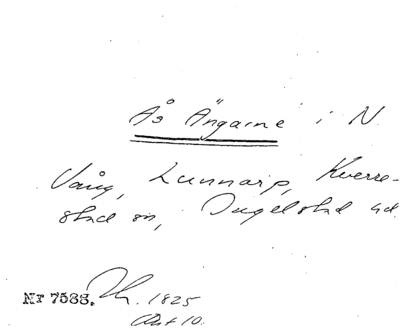 Ås Ängarne i N
Vång, Lunnarp, Kverre-
stad sn, Ingelstad hd.
Nr 7588. Th. 1825
Okt 10.